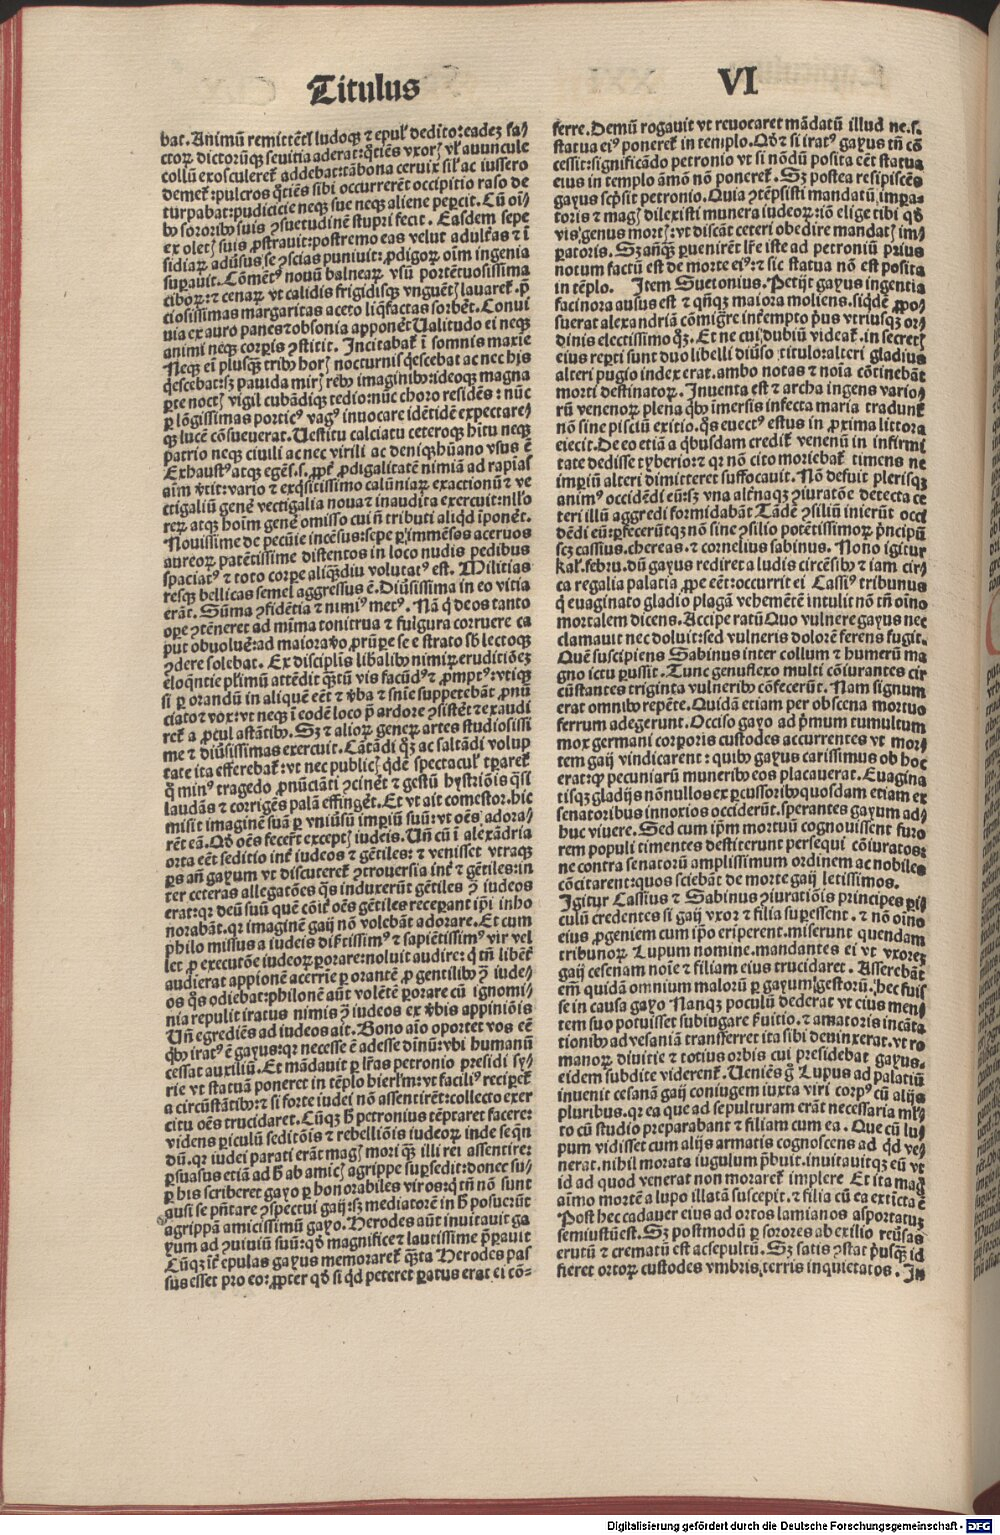 Titulus VI
bat. Animū remittētī ludoqꝫ ⁊ epul' dedito: eadeꝫ fa-
ctoꝝ dictorūqꝫ seuitia aderat: q̄tiēs vxorꝭ vl' auuncule
collū exosculeret᷑ addebat: tā bona ceruix sil' ac iussero
demet᷑: pulcros q̄tiēs sibi occurrerēt occipitio raso de
turpabat: pudicicie neqꝫ sue neqꝫ aliene pepcit. Cū oī-
bꝰ sororibꝰ suis ꝯsuetudinē stupri fecit. Easdem sepe
ex oletꝭ suis ꝓstrauit: postremo eas velut adult̄as ⁊ ī
sidiaꝝ adūsus se ꝯscias puniuit: ꝓdigoꝝ oīm ingenia
supauit. Cōmētꝰ nouū balneaꝝ vsū portētuosissima
ciboꝝ: ⁊ cenaꝝ vt calidis frigidisqꝫ vnguētꝭ lauaret᷑. p̄
ciosissimas margaritas aceto liq̄factas sorbēt. Conui
uia ex auro panes ⁊ obsonia apponēt Ualitudo ei neqꝫ
animi neqꝫ corpis ꝯstitit. Incitabat᷑ ī somnis maxie
Neqꝫ eī plusqꝫ tribꝰ horꝭ nocturnis q̄escebat ac nec his
q̄escebat: sꝫ pauida mirꝭ rebꝰ imaginibꝰ: ideoqꝫ magna
pte noctꝭ vigil cubādiqꝫ tedio: nūc choro residēs: nūc
p lōgissimas porticꝰ vagꝰ inuocare idētidē expectare-
qꝫ lucē cōsueuerat. Uestitu calciatu ceteroqꝫ hītu neqꝫ
patrio neqꝫ ciuili ac nec virili ac deniqꝫ hūano vsus ē
Exhaustꝰ atqꝫ egēs. s. ꝓpt̄ ꝓdigalitatē nimiā ad rapīas
aīm v̄tit: vario ⁊ exq̄sitissimo calūniaꝝ exactionū ⁊ ve
ctigaliū genē vectigalia noua ⁊ inaudita exercuit: nl'lo
reꝝ atqꝫ hoīm genē omisso cui n̄ tributi aliqd īponēt.
Nouissime de pecūie incēsus: sepe p īmēsos aceruos
aureoꝝ patētissime distentos in loco nudis pedibus
spaciatꝰ ⁊ toto corpe aliqꝫdiu volutatꝰ est. Militias
resqꝫ bellicas semel aggressus ē. Diūsissima in eo vitia
erāt. Sūma ꝯfidētia ⁊ nimiꝰ metꝰ. Nā q̄ deos tanto
ope ꝯtēneret ad mīma tonitrua ⁊ fulgura corruere ca
put obuoluē: ad maiora v̄o ꝓrūpe se e strato sb̄ lectoqꝫ
ꝯdere solebat. Ex disciplīs libalibꝰ nimiꝝ eruditiōeꝫ
eloq̄ntie plīmū attēdit qꝫtū vis facūdꝰ ⁊ ꝓmptꝰ: vtiqꝫ
si p orandū in aliquē eēt ⁊ v̄ba ⁊ snīe suppetebāt ꝓnū
ciato ⁊ vox: vt neqꝫ ī eodē loco p̄ ardore ꝯsistēt ⁊ exaudi
ret᷑ a ꝓcul astātibꝰ. Sꝫ ⁊ alioꝝ geneꝝ artes studiosissi
me ⁊ diūsissimas exercuit. Cātādi qꝫ ac saltādi volup
tate ita efferebat᷑: vt nec publicꝭ q̄dē spectacul' tꝑaret᷑
q̄ minꝰ tragedo ꝓnūciāti ꝯcinēt ⁊ gestū hystriōis q̄si
laudās ⁊ corrigēs palā effingēt. Et vt ait comestor. hic
misit imaginē suā p vniūsū imperiū suū: vt oēs adora-
rēt eā. Qd' oēs fecerūt exceptꝭ iudeis. Un̄ cū ī alexādria
orta eēt seditio int̄ iudeos ⁊ gētiles: ⁊ venisset vtraqꝫ
ps an̄ gayum vt discuteret᷑ ꝯtrouersia int̄ ⁊ gentiles: in
ter ceteras allegatōes q̄s induxerūt gētiles ꝯ̄ iudeos
erat: qꝛ deū suū quē cōit̄ oēs gētiles recepant ip̄i inho
norabāt. qꝛ imaginē gaij nō volebāt adorare. Et cum
philo missus a iudeis disertissimꝰ ⁊ sapiētissimꝰ vir vel
let ꝓ executōe iudeoꝝ porare: noluit audire: q̄ tn̄ libēt᷑
audierat appionē acerrie p orantē ꝓ gentilibꝰ ꝯ̄ iude-
os q̄s odiebat: philonē aūt volētē porare cū ignomi-
nia repulit iratus nimis ꝯ̄ iudeos ex v̄bis appiniōis
Un̄ egrediēs ad iudeos ait. Bono aīo oportet vos eē
q̄bꝰ iratꝰ ē gayus: qꝛ necesse ē adesse diuinū: vbi humanū
cessat auxiliū. Et mādauit p lr̄as petronio presidi sy-
rie vt statuā poneret in tēplo hierl'm: vt faciliꝰ recipet᷑
a circūstātibꝰ: ⁊ si forte iudei nō assentirēt: collecto exer
citu oēs trucidaret. Cūqꝫ h̄ petronius tēptaret facere:
videns piculū seditōis ⁊ rebelliōis iudeoꝝ inde seqn̄
dū. qꝛ iudei parati erāt magꝭ mori qꝫ illi rei assentire:
psuasus etiā ad h̄ ab amicꝭ agrippe supsedit: donec su-
p his scriberet gayo p honorabiles viros: q̄ tn̄ nō sunt
ausi se p̄ntare ꝯspectui gaij: sꝫ mediatorē in h̄ posuerūt
agrippā amicissimū gayo. Herodes aūt inuitauit ga
yum ad ꝯuiuiū suū: qd' magnifice ⁊ lautissime p̄parauit
Cūqꝫ īt̄ epulas gayus memoraret᷑ qꝫta Herodes pas
sus esset pro eo: ꝓpter qd' si qd peteret patus erat ei cō-
ferre. Demū rogauit vt reuocaret mādatū illud ne. s.
statua eiꝰ poneret᷑ in templo. Qd' ⁊ si iratꝰ gayus tn̄ cō
cessit: significādo petronio vt si nōdū posita eēt statua
eius in templo āmō nō poneret᷑. Sꝫ postea resipiscēs
gayus sc̄psit petronio. Quia ꝯtēpsisti mandatū impa-
toris ⁊ magꝭ dilexisti munera iudeoꝝ: iō elige tibi qd'
vis genus mortꝭ: vt discāt ceteri obedire mandatꝭ im-
patoris. Sꝫ anqꝫ puenirēt lr̄e iste ad petroniū prius
notum factū est de morte eiꝰ: ⁊ sic statua nō est posita
in tēplo. Item Suetonius. Petijt gayus ingentia
facinora ausus est ⁊ qn̄qꝫ maiora moliens. siqdē ꝓpo-
suerat alexandriā cōmigrē interempto p̄us vtriusqꝫ or-
dinis electissimo qꝫ. Et ne cui dubiū videat᷑. in secretꝭ
eius repti sunt duo libelli diūso titulo: alteri gladius
alteri pugio index erat. ambo notas ⁊ noīa cōtinebāt
morti destinatoꝝ. Inuenta est ⁊ archa ingens vario-
rū venenoꝝ plena q̄bꝰ īmersis infecta maria tradunt᷑
nō sine pisciū exitio. q̄s euectꝰ estus in ꝓxima littora
eiecit. De eo etiā a q̄busdam credit᷑ venenū in infirmi
tate dedisse tyberio: ⁊ qꝛ nō cito moriebat᷑ timens ne
imperiū alteri dimitteret suffocauit. Nō defuit plerisqꝫ
animꝰ occidēdi eū: sꝫ vna alt̄naqꝫ ꝯiuratōe detecta ce
teri illū aggredi formidabāt Tādē ꝯsiliū inierūt occi
dēdi eū: pfecerūtqꝫ nō sine ꝯsilio potētissimoꝝ p̄ncipū
scꝫ cassius. chereas. ⁊ cornelius sabinus. Nono igitur
kal'. febru. dū gayus rediret a ludis circēsibꝰ ⁊ iam cir-
ca regalia palatia ꝓpe eēt: occurrit ei Cassiꝰ tribunus
q̄ euaginato gladio plagā vehemētē intulit nō tn̄ oīno
mortalem dicens. Accipe ratū Quo vulnere gayus nec
clamauit nec doluit: sed vulneris dolorē ferens fugit.
Quē suscipiens Sabinus inter collum ⁊ humerū ma
gno ictu pcussit. Tunc genuflexo multi cōiurantes cir
cūstantes triginta vulneribꝰ cōfecerūt. Nam signum
erat omnibꝰ repēte. Quidā etiam per obscena mortuo
ferrum adegerunt. Occiso gayo ad p̄mum tumultum
mox germani corporis custodes accurrentes vt mor-
tem gaij vindicarent: quibꝰ gayus carissimus ob hoc
erat: qꝛ pecuniarū muneribꝰ eos placauerat. Euagina
tisqꝫ gladijs nōnullos ex pcussoribꝰ quosdam etiam ex
senatoribus innoxios occiderūt. sperantes gayum ad-
huc viuere. Sed cum ip̄m mortuū cognouissent furo
rem populi timentes destiterunt persequi cōiuratos:
ne contra senatorū amplissimum ordinem ac nobiles
cōcitarent: quos sciebāt de morte gaij letissimos.
Igitur Cassius ⁊ Sabinus ꝯiuratiōis principes pi-
culū credentes si gaij vxor ⁊ filia supessent. ⁊ nō oīno
eius ꝓgeniem cum ip̄o eriperent. miserunt quendam
tribunoꝝ Lupum nomine. mandantes ei vt vxoreꝫ
gaij cesenam noīe ⁊ filiam eius trucidaret. Asserebāt
em̄ quidā omnium maloꝝ p gayum gestorū. hec fuis
se in causa gayo Nanqꝫ poculū dederat vt eius men-
tem suo potuisset subiugare seruitio. ⁊ amatoris incāta
tionibꝰ ad vesaniā transferret ita sibi deninxerat. vt ro
manoꝝ diuitie ⁊ totius orbis cui presidebat gayus.
eidem subdite viderent᷑. Ueniēs g̊ Lupus ad palatiū
inuenit cesanā gaij coniugem iuxta viri corpꝰ cū alijs
pluribus. qꝛ ea que ad sepulturam erāt necessaria ml'-
to cū studio preparabant ⁊ filiam cum ea. Que cū lu-
pum vidisset cum alijs armatis cognoscens ad qd ve-
nerat. nihil morata iugulum p̄buit. inuitauitqꝫ eū vt
id ad quod venerat non moraret᷑ implere Et ita magͦ
aīmo mortē a lupo illatā suscepit. ⁊ filia cū ea extīcta ē
Post hec cadauer eius ad ortos lamianos asportatuꝫ
semiustū est. Sꝫ postmodū p sorores ab exilio reūsas
erutū ⁊ crematū est ac sepultū. Sꝫ satis ꝯstat p̄usqꝫ id
fieret ortoꝝ custodes vmbris terris inquietatos. In
Digitalisierung gefördert durch die Deutsche Forschungsgemeinschaft - DFG